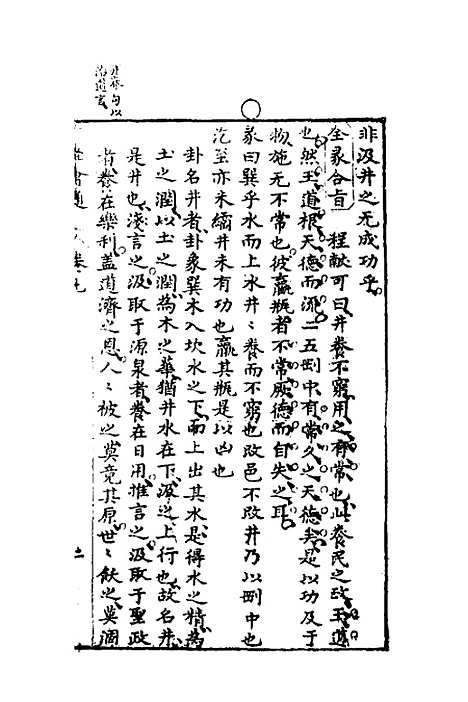 非汲井之无成功乎
全彖合旨　程敬可曰井養不窮用之有常也此養民之政王道
也然王道根天德而流二五剛中有常久之天德矣是以功及于
物施无不常也彼羸瓶者不常厥德而自失之耳
彖曰巽乎水而上水井〻養而不窮也改邑不改井乃以剛中也
汔至亦未繘井未有功也羸其瓶是以凶也
卦名井者卦象巽木入坎水之下而上出其水是得水之精為
土之潤以土之潤為木之華猶井水在下汲之上行也故名井
是井也淺言之汲取于源泉者養在日用推言之汲取于聖政
者養在樂利蓋道濟之恩人〻被之莫竟其原世〻飲之莫涸
井養句以